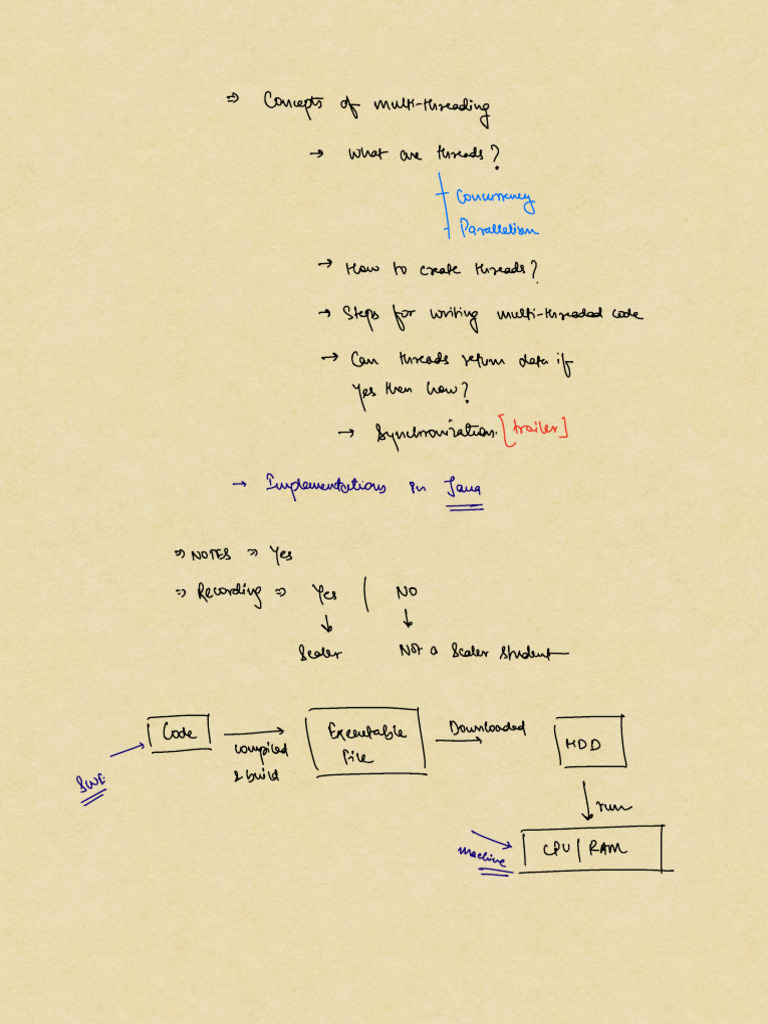 ⇒ Concepts of multi-threading
→ What are threads?
Concurrency
Parallelism
→ How to create threads?
→ Steps for writing multi-threaded code
→ Can threads return data if
Yes then how?
→ Synchronization. [trailer]
→ Implementations in Java
⇒ NOTES ⇒ Yes
⇒ Recording ⇒ Yes | NO
↓ ↓
Scaler Not a Scaler student
Code → Executable Downloaded → HDD
compiled File
& build
SWE
↓ run
CPU | RAM
machine